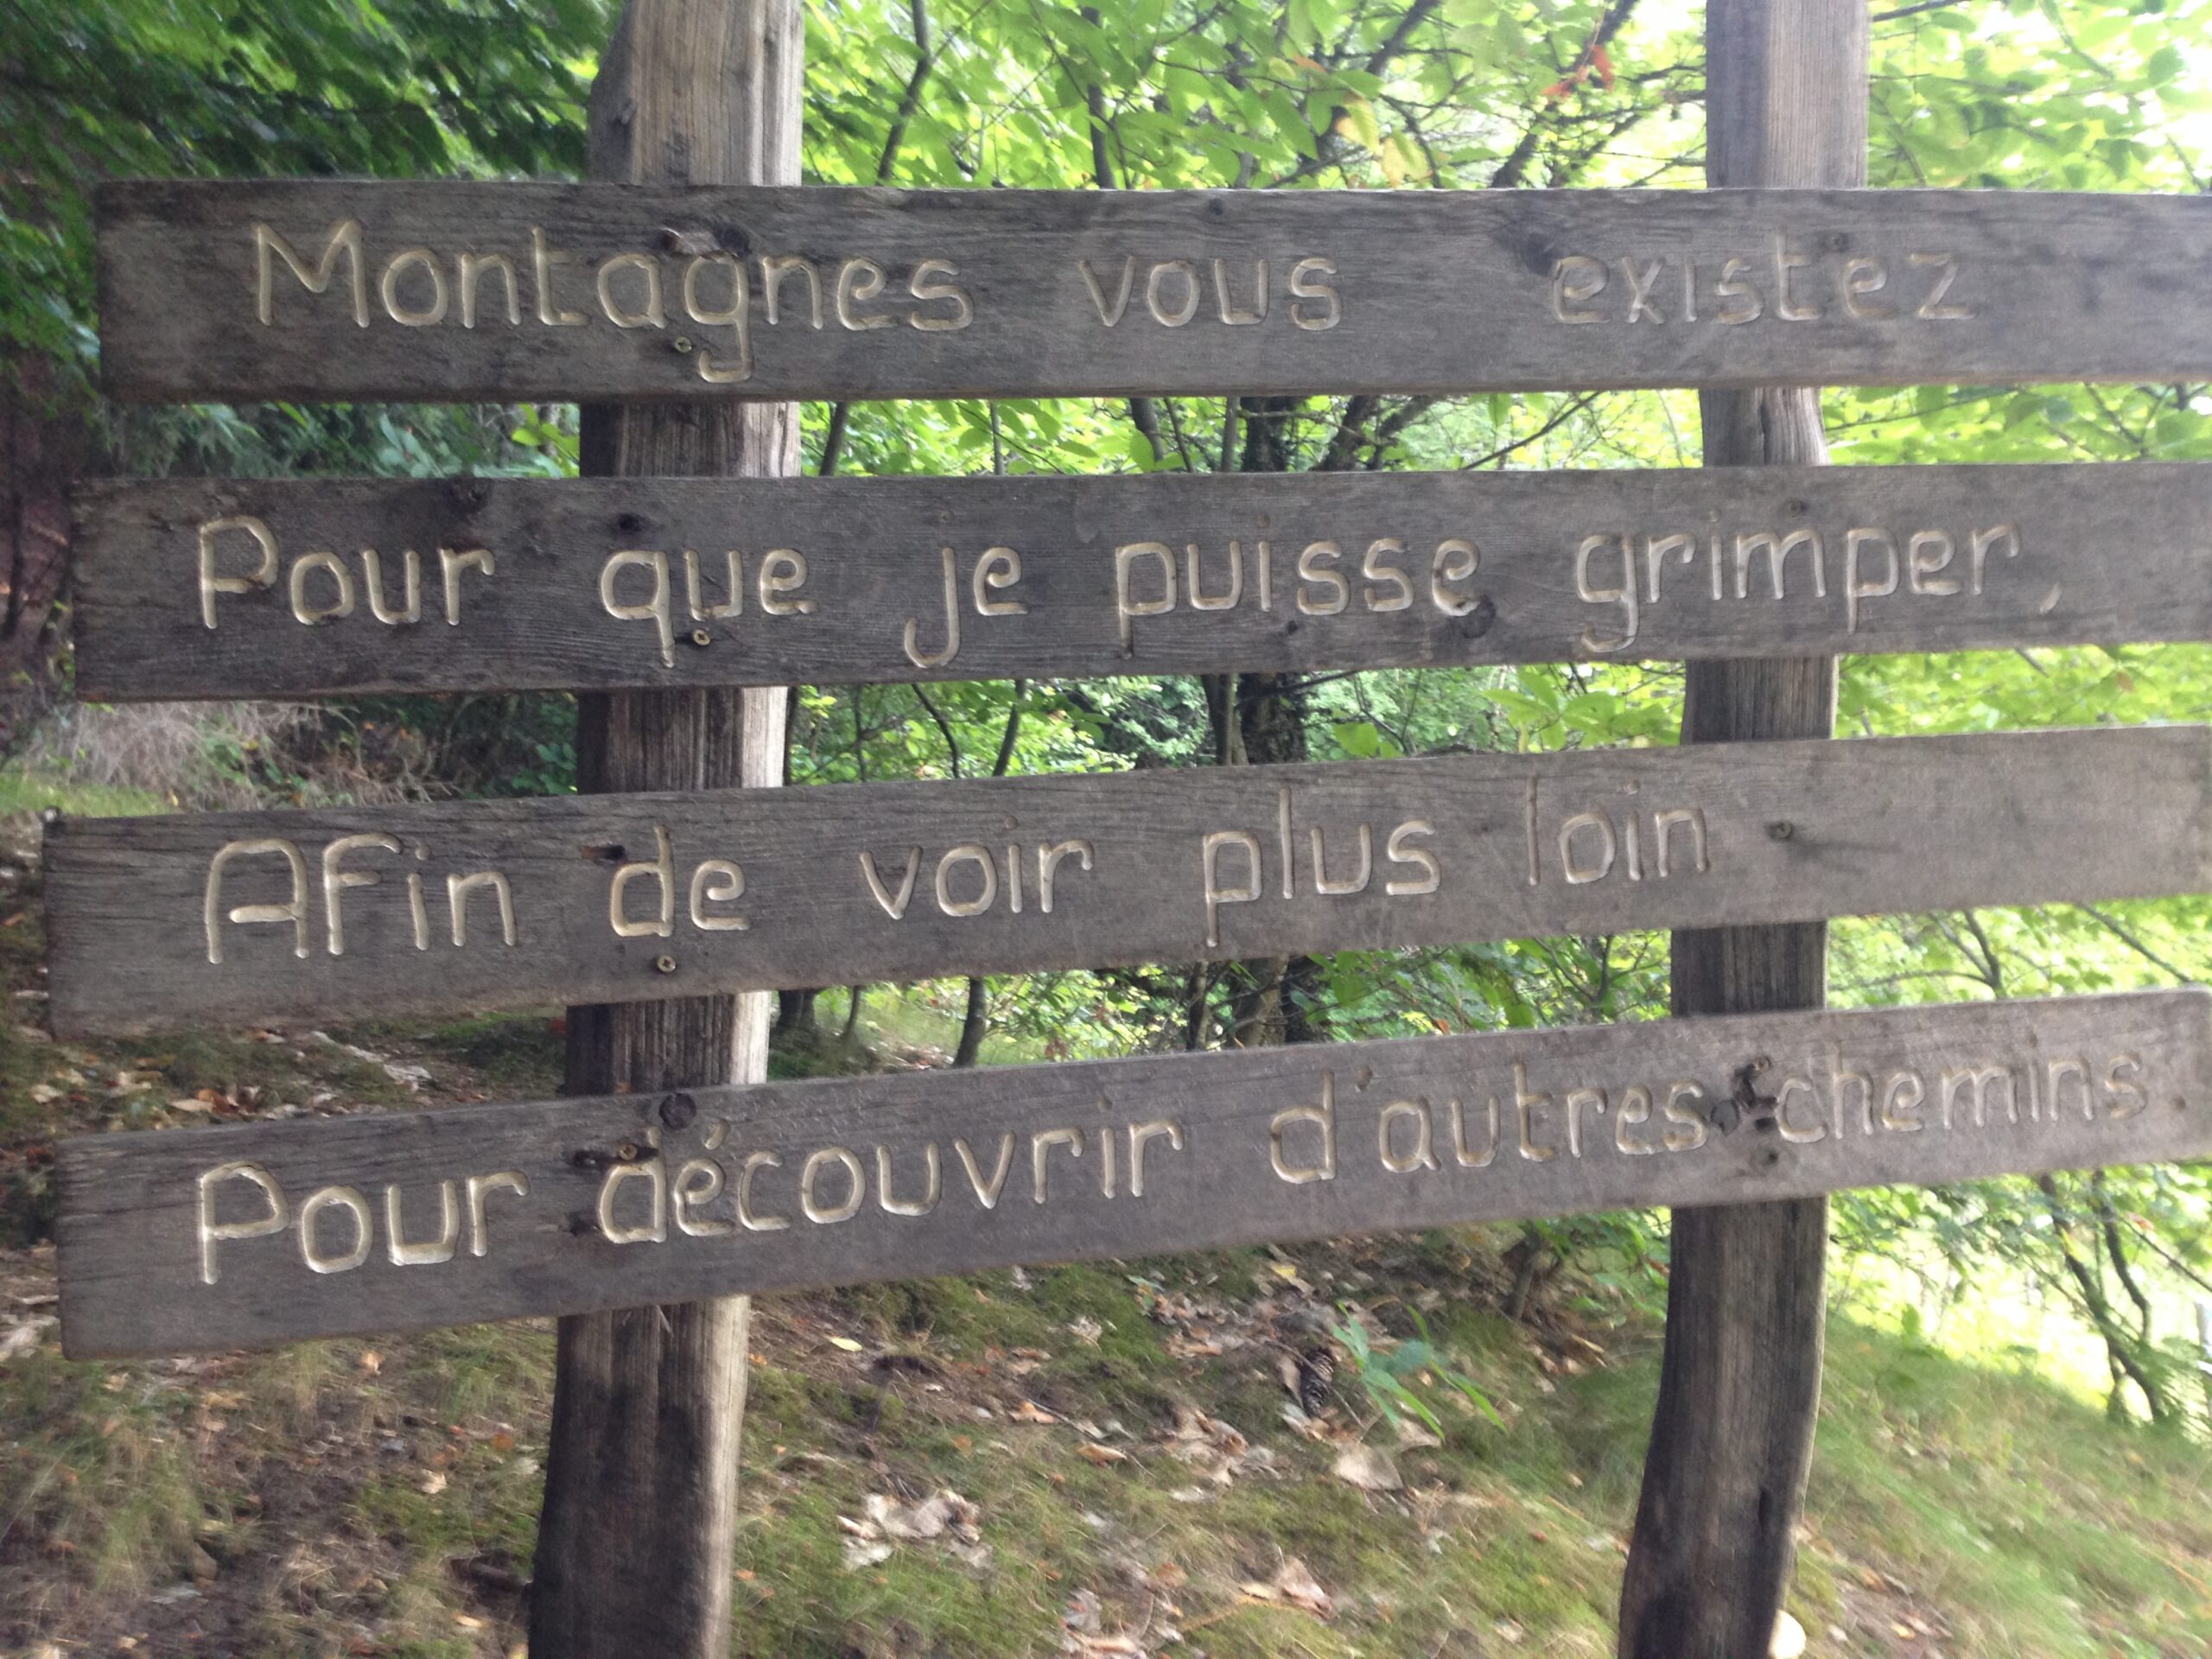 Montagnes vous existez
Pour que je puisse grimper,
Afin de voir plus loin
Pour découvrir d'autres chemins.